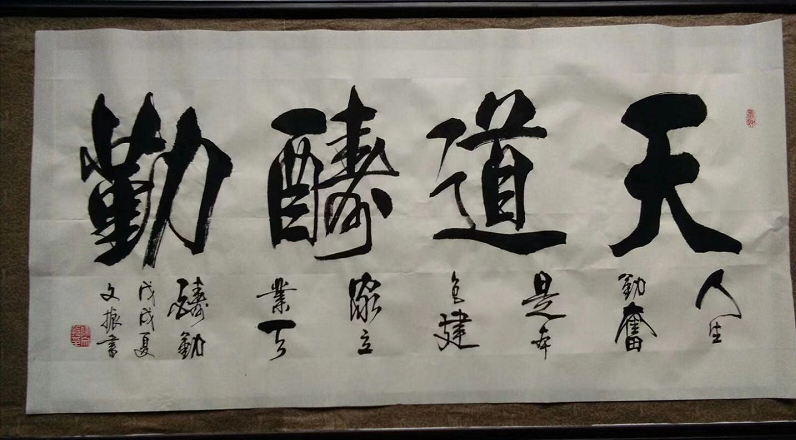 天道酬勤
人生
勤奮
是本
色建
家立
業天
酬勤
戊戌夏
文振書